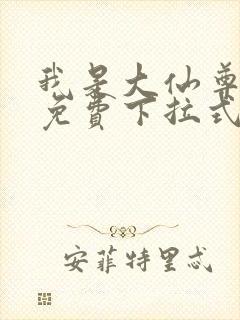 我是大仙尊
免費下拉式
安菲特里忒